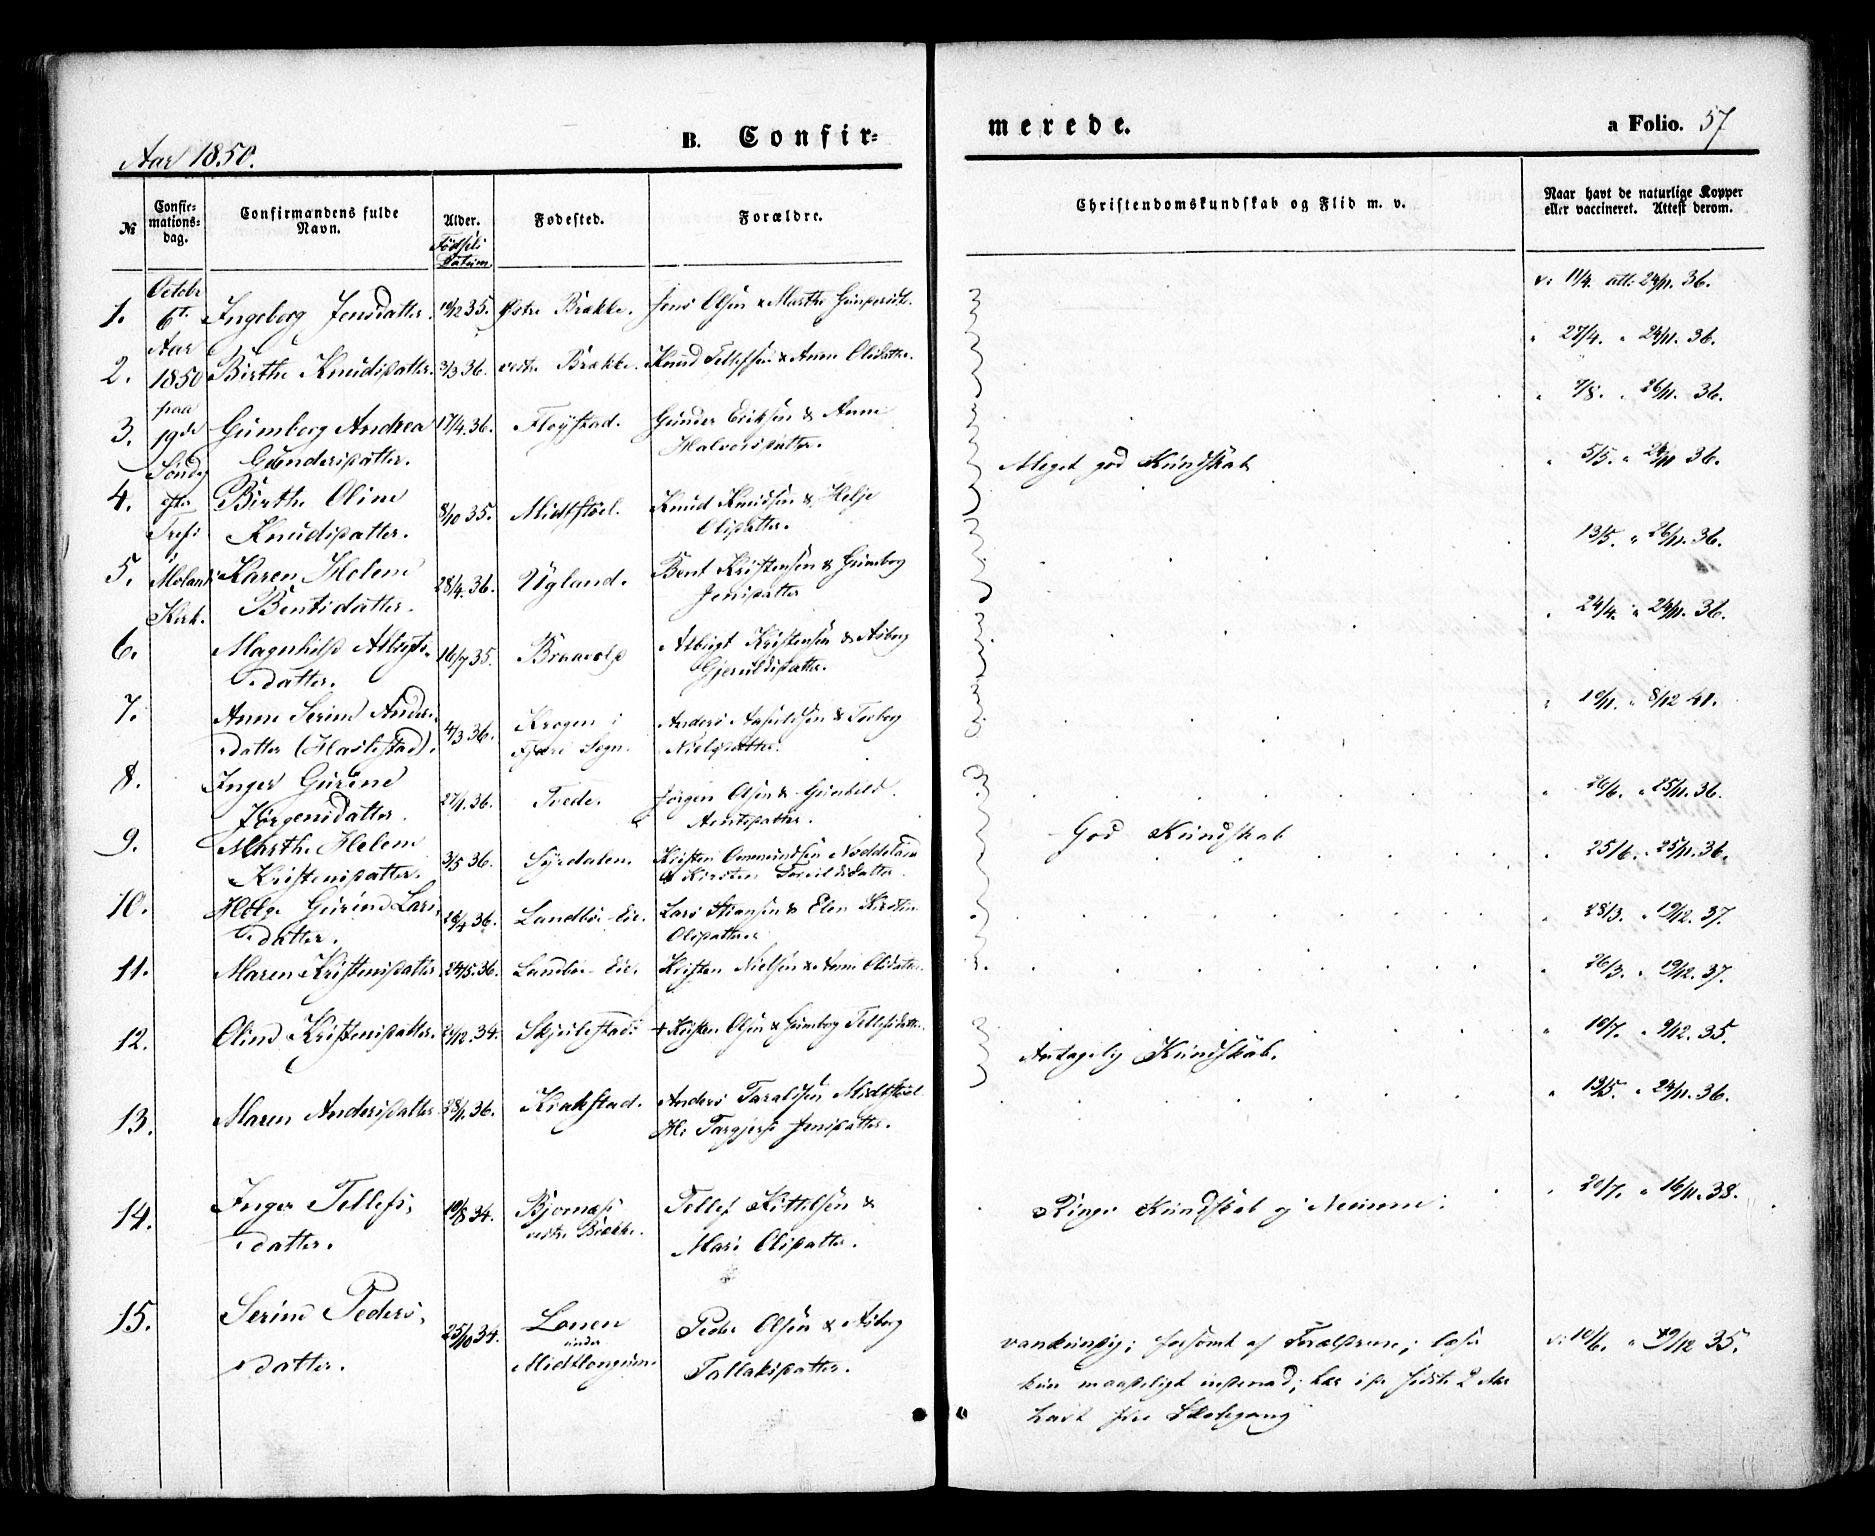 Aar 1850.
B. Confir=
merede.
a Folio. 57
№
Confir-
mations-
dag.
Confirmandens fulde
Navn.
Alder.
Fødsels
Datum
Fødested.
Forældre.
Christendomskundskab og Flid m. v.
Naar havt de naturlige Kopper
eller vaccineret. Attest derom.
Octobr
6te
Aar
1850
paa
19de
Søndag
efter
Trefs
i
Moland
Kirk.
1. Ingeborg Jensdatter. 10/12 35. Østre Brække. Jens Olsen & Marthe Gunpersdtr. v: 11/4. att: 24/11. 36.
2. Birthe Knudsdatter. 3/3 36. vestre Brække. Knud Tellefsen & Anne Olsdatter. " 27/4. " 24/11. 36.
3. Gumborg Andrea 17/4. 36. Fløystad. Gunder Eriksen & Anne " 7/8. " 26/11. 36.
Gundersdatter. Halvorsdatter.
Meget god Kundskab " 5/5. " 24/11 36.
4. Birthe Oline 8/10 35. Midtstøel. Knud Knudsen & Helje
Knudsdatter. Olsdatter. 13/5. " 26/11. 36.
5. Karen Helene 28/4. 36. Ugland. Bent Kristensen & Gumborg
Bentsdatter. Jensdatter " 24/4. " 24/11. 36.
6. Magnhild Albregts- 16/7 35. Braavold Albregt Kristensen & Asborg
datter. Gjeruldsdatter.
7. Anne Serine Anders- 4/3 36. Krogen i Anders Aasuldsen & Torborg " 10/11. " 8/12 41.
datter (Haslestad). Fjære Sogn. Nielsdatter.
8. Inger Gurine 27/1. 36. Tvede. Jørgen Olsen & Gunhild " 26/6. " 25/11. 36.
Jørgensdatter. Aentsdatter.
God Kundskab
9. Marthe Helene 3/5 36. Syrdalen. Kristen Ommundsen Nøddeland " 25/6. " 25/11. 36.
Kristensdatter. & Kirsten Torvildsdatter.
10. Helge Gurine Lars- 18/4 36. Landbøe-Eie. Lars Stiansen & Elen Kirstine " 28/3. " 19/12. 37.
datter. Olsdatter
11. Maren Kristensdatter. 24/5. 36. Landbøe-Eie. Kristen Nielsen & Anne Olsdatter " 26/3. " 19/12. 37.
12. Oline Kristensdatter. 21/12. 34. Skjulestad. + Kristen Olsen & Gumborg Tellefsdatter. " 10/7. " 9/12. 35.
Antagelig Kundskab.
13. Maren Andersdatter 28/1. 36. Krakstad. Anders Taraldsen Midtstøel " 13/5. " 24/11. 36.
M: Torgjerd Jensdatter.
14. Inger Tellefs- 10/8 34. Bjornæs: Tellef Kittilsen & Ringe Kundskab og Nemme: " 20/7. " 16/11. 38.
datter. vestre Brække. Mari Olsdatter.
15. Serine Peders- 25/10 34. Lonen Peder Olsen & Asborg vankundig; forsømt af Forældrene; læser v: 10/6. " 19/12 35.
datter. under
Midtlongum. Tallaksdatter. kun maadeligt indenad; har i de sidste 2 Aar
havt fri Skolegang